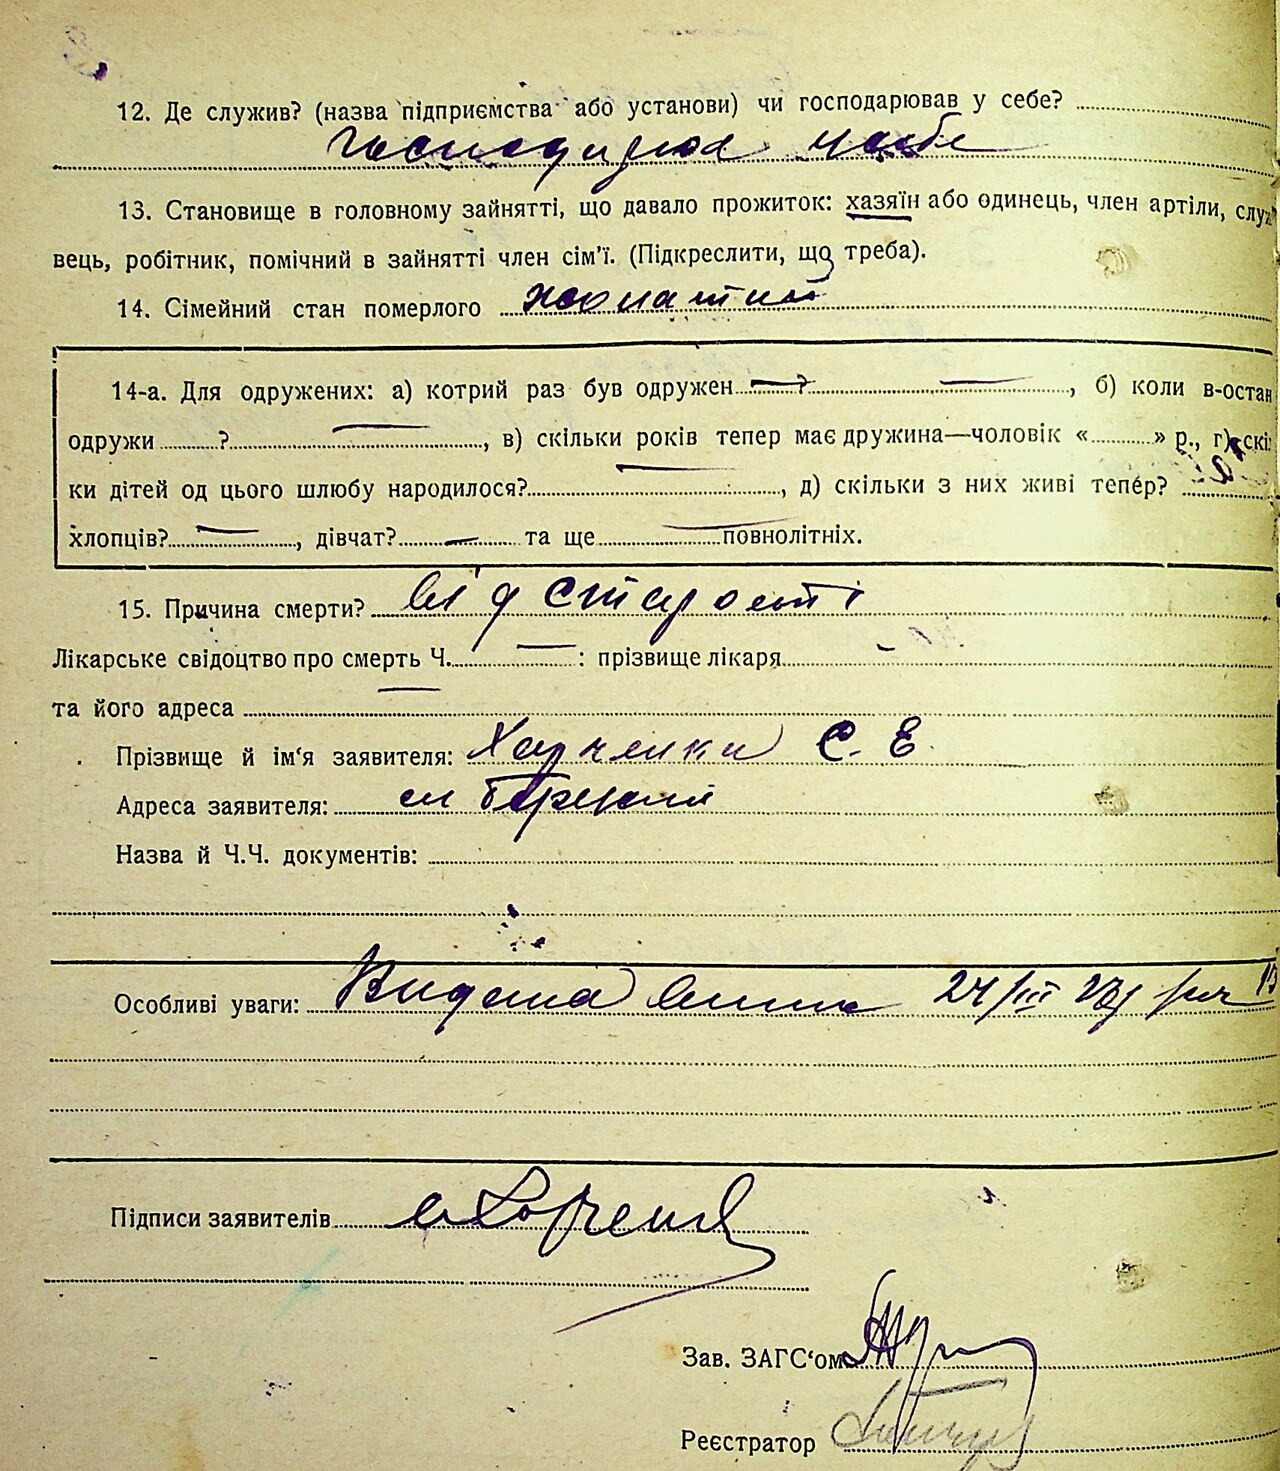 12. Де служив? (назва підприємства або установи) чи господарював у себе?
13. Становище в головному зайнятті, що давало прожиток: хазяїн або одинець, член артіли, служ
вець, робітник, помічний в зайнятті член сім'ї. (Підкреслити, що треба).
14. Сімейний стан померлого жонатий
14-а. Для одружених: а) котрий раз був одружен — ? —, б) коли в-остан
одружи ? —, в) скільки років тепер має дружина—чоловік « » р., г) скі
ки дітей од цього шлюбу народилося? —, д) скільки з них живі тепер?
хлопців? —, дівчат? — та ще — повнолітніх.
15. Причина смерти? від старості
Лікарське свідоцтво про смерть Ч. — : прізвище лікаря —
та його адреса —
Прізвище й ім'я заявителя: Харченки С. Е
Адреса заявителя:
Назва й Ч.Ч. документів:
Особливі уваги: Видана 24/III
Підписи заявителів
Зав. ЗАГС'ом
Реєстратор